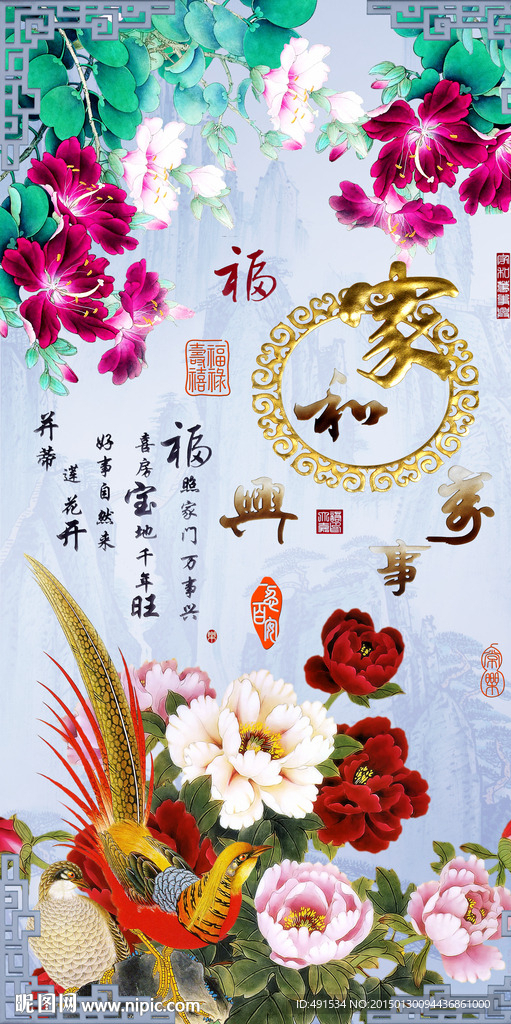 福
家
和
萬
事
興
家和萬事興
福祿
壽禧
福照家门万事兴
喜房宝地千年旺
好事自然来
并蒂
莲花开
昵图网 www.nipic.com
ID:491534 NO:20150130094436861000